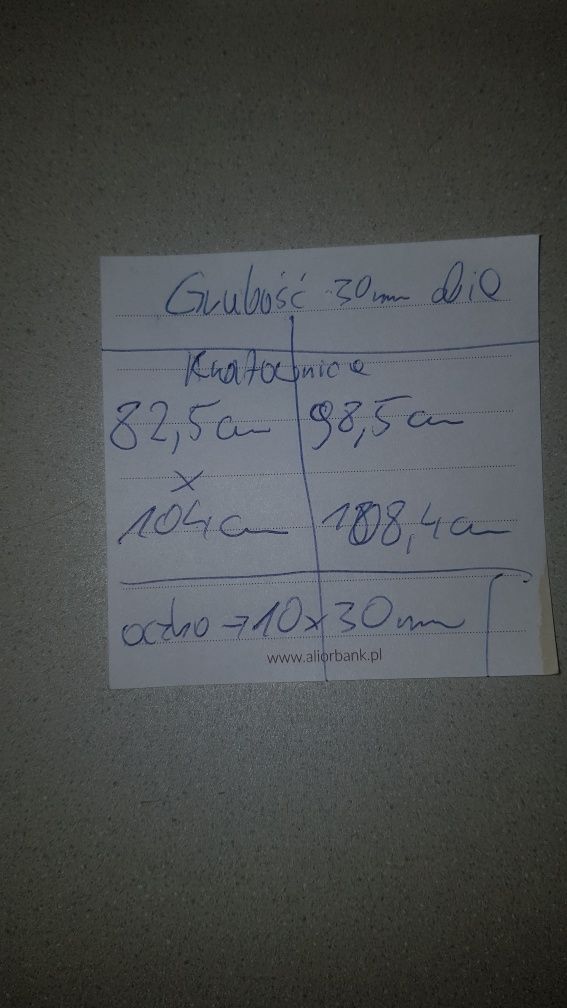 Grubość 30mm obie
Kratownice
82,5cm 98,5cm
x
104cm 108,4cm
oczko → 10x30mm
www.aliorbank.pl